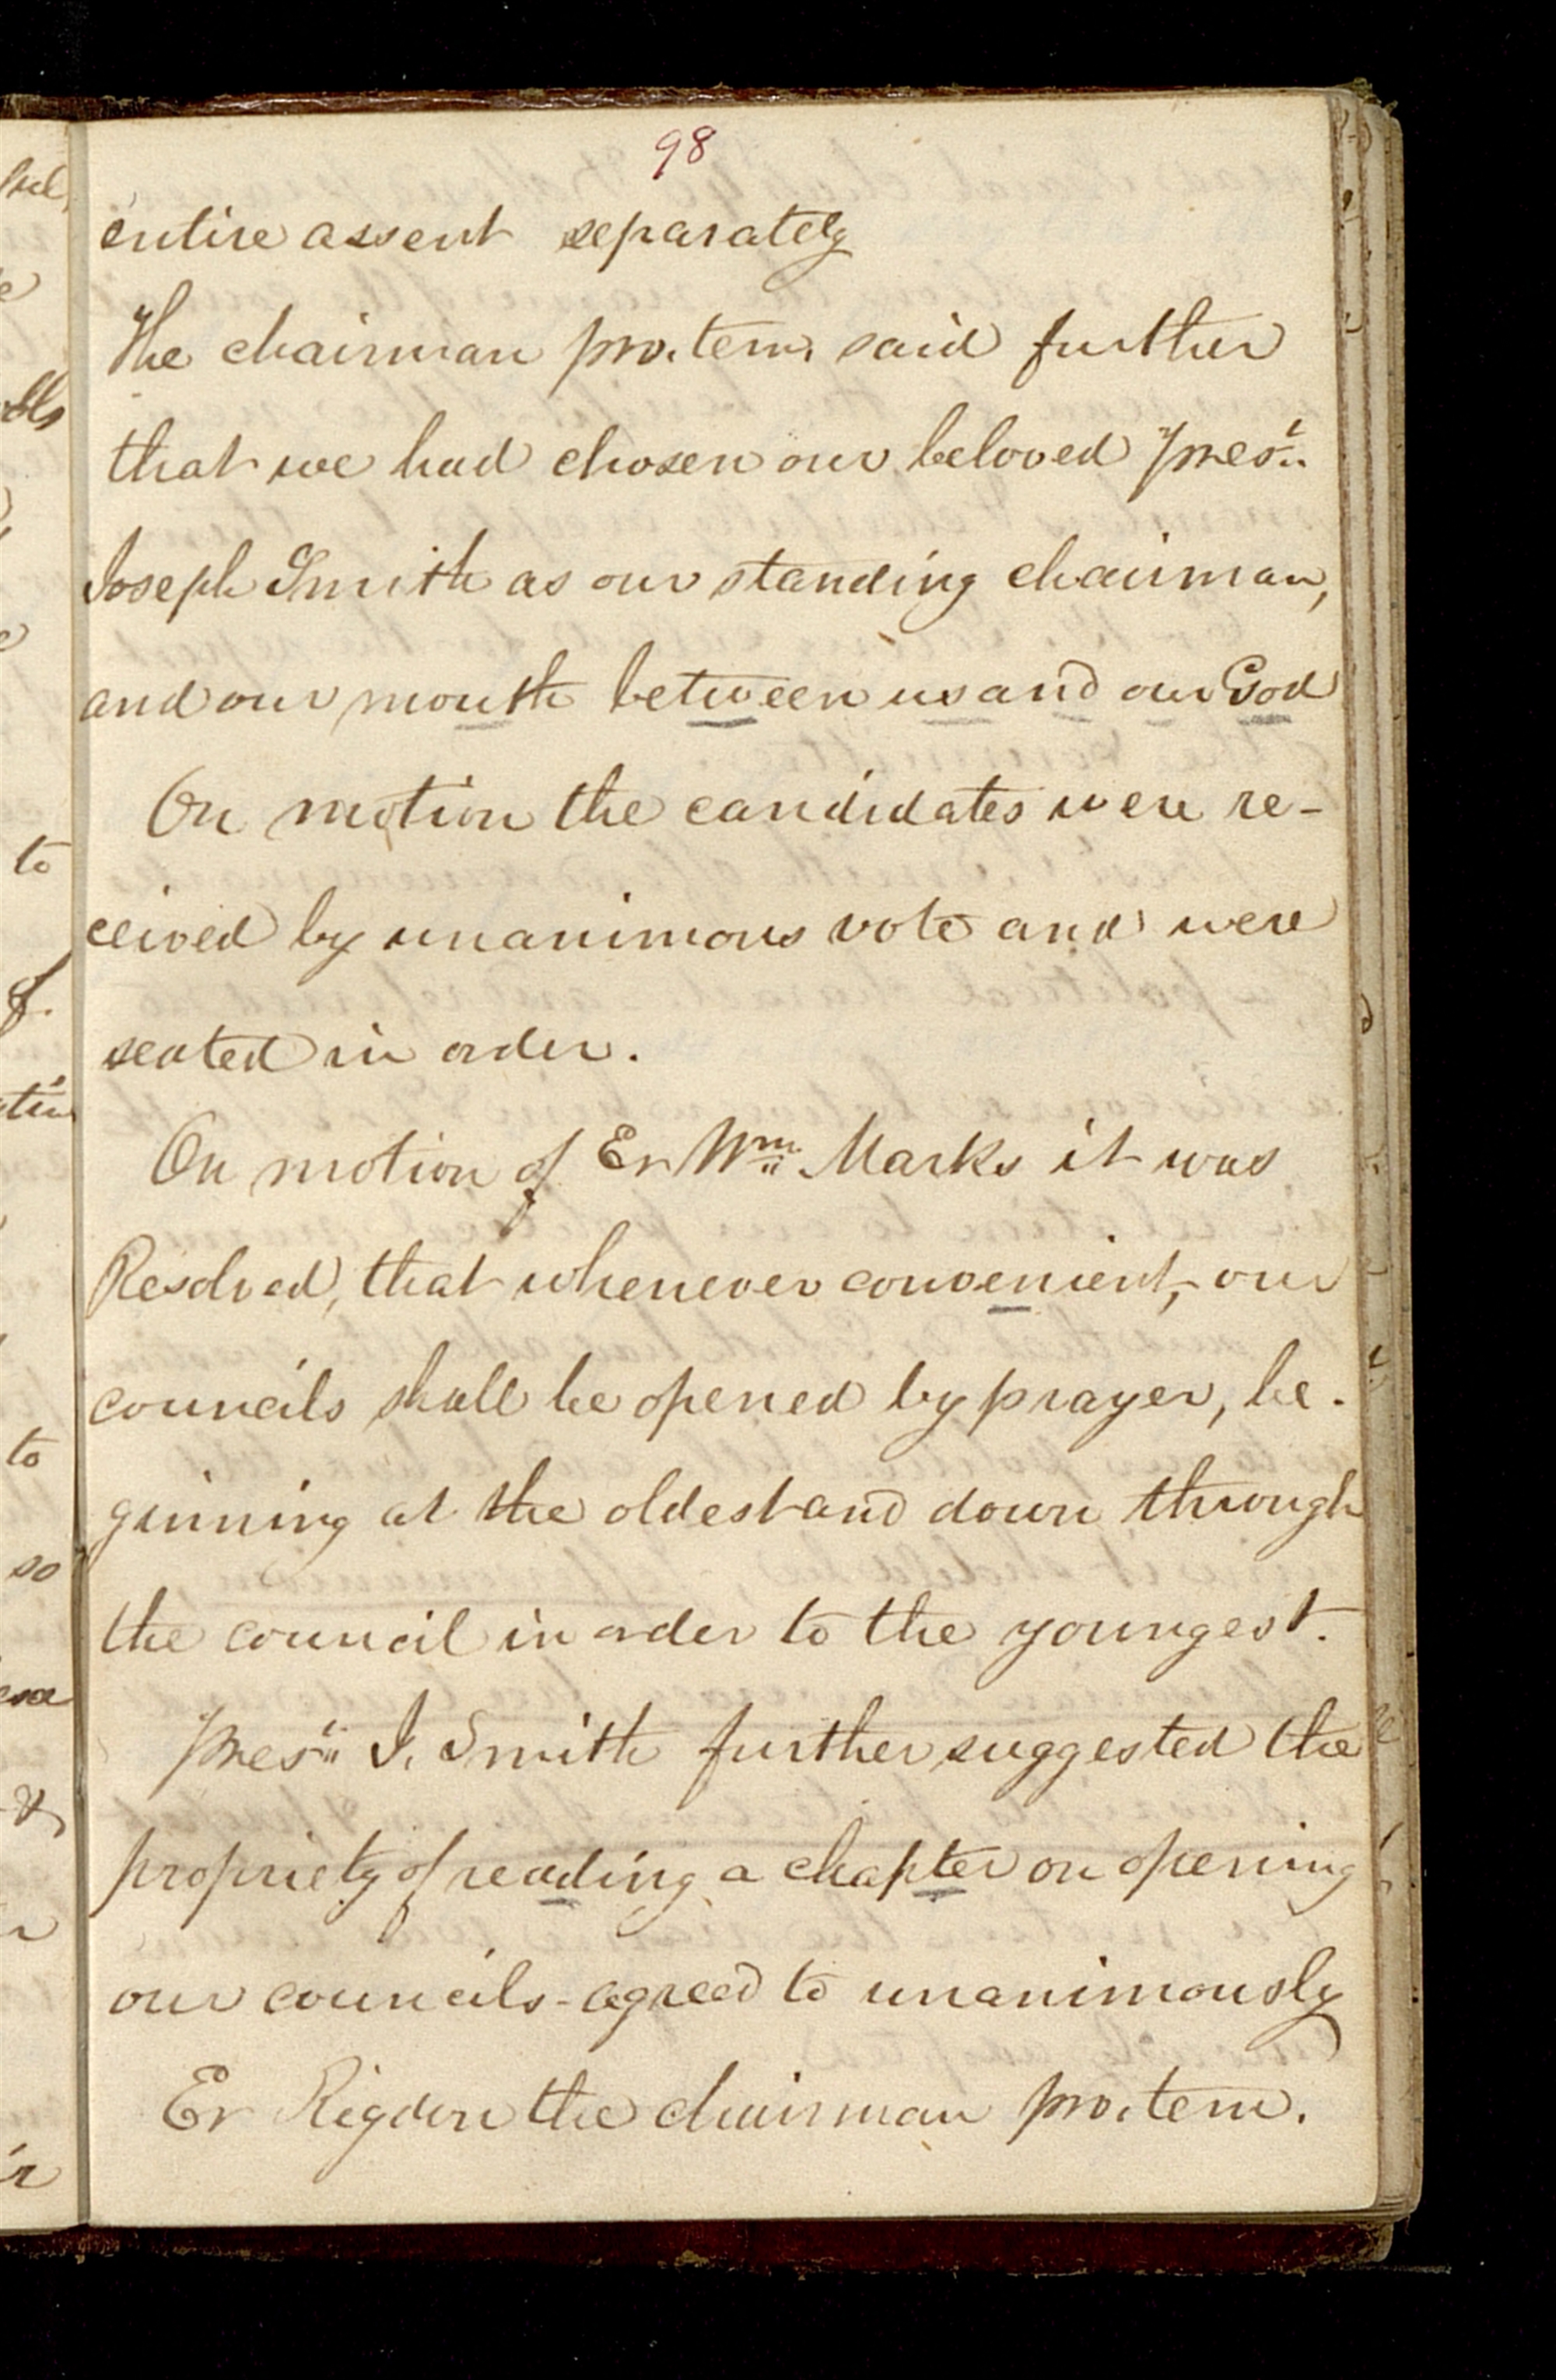 98
entire assent separately
The chairman pro. tem. said further
that we had chosen our beloved Prest.
Joseph Smith as our standing chairman,
and our mouth between us and our God
On motion the candidates were re-
ceived by unanimous vote and were
seated in order.
On motion of Er Wm. Marks it was
Resolved, that whenever convenient, our
councils shall be opened by prayer, be-
ginning at the oldest and down through
the council in order to the youngest.
Prest. J. Smith further suggested the
propriety of reading a chapter on opening
our councils - agreed to unanimously
Er Rigdon the chairman pro. tem.